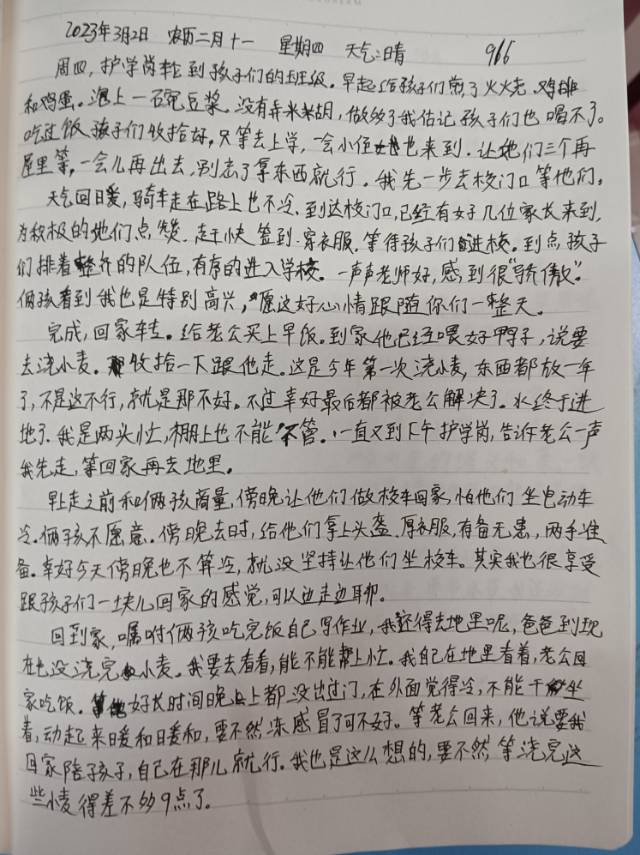 2023年3月2日 农历二月十一 星期四 天气:晴 966
周四,护学岗轮到孩子们的班级。早起给孩子们煎了火烧、鸡排
和鸡蛋。泡上一百宛豆浆。没有弄米糊,做够了我估记孩子们也喝不了。
吃过饭孩子们收拾好,只等去上学,一会小伍也来到。让她们三个再
屋里等,一会儿再出去,别忘了拿东西就行。我先一步去校门口等他们。
天气回暖,骑车走在路上也不冷。到达校门口,已经有好几位家长来到,
为积极的她们点赞。赶快签到穿衣服。等待孩子们进校。到点孩子
们排着整齐的队伍,有序的进入学校。一声声老师好,感到很“骄傲”。
俩孩看到我也是特别高兴,愿这好心情跟随你们一整天。
完成,回家转。给老公买上早饭。到家他已经喂好鸭子,说要
去浇小麦。收拾一下跟他走。这是今年第一次浇小麦,东西都放一年
了,不是这不行,就是那不好。不过幸好最后都被老公解决了。水终于进
地了。我是两头忙,棚上也不能不管。一直又到下午护学岗,告诉老公一声
我先走,等回家再去地里。
早上走之前和俩孩商量,傍晚让他们做校车回家,怕他们坐电动车
冷。俩孩不愿意。傍晚去时,给他们拿上头盔、厚衣服,有备无患,两手准
备。幸好今天傍晚也不算冷,就没坚持让他们坐校车。其实我也很享受
跟孩子们一块儿回家的感觉,可以边走边聊。
回到家,嘱咐俩孩吃完饭自己写作业,我还得去地里呢,爸爸到现
在也没浇完小麦。我要去看看,能不能帮上忙。我自己在地里看着,老公回
家吃饭。好长时间晚上都没出过门,在外面觉得冷,不能干坐
着,动起来暖和暖和,要不然冻感冒了可不好。等老公回来,他说要我
回家陪孩子,自己在那儿就行。我也是这么想的,要不然等浇完这
些小麦得差不多9点了。